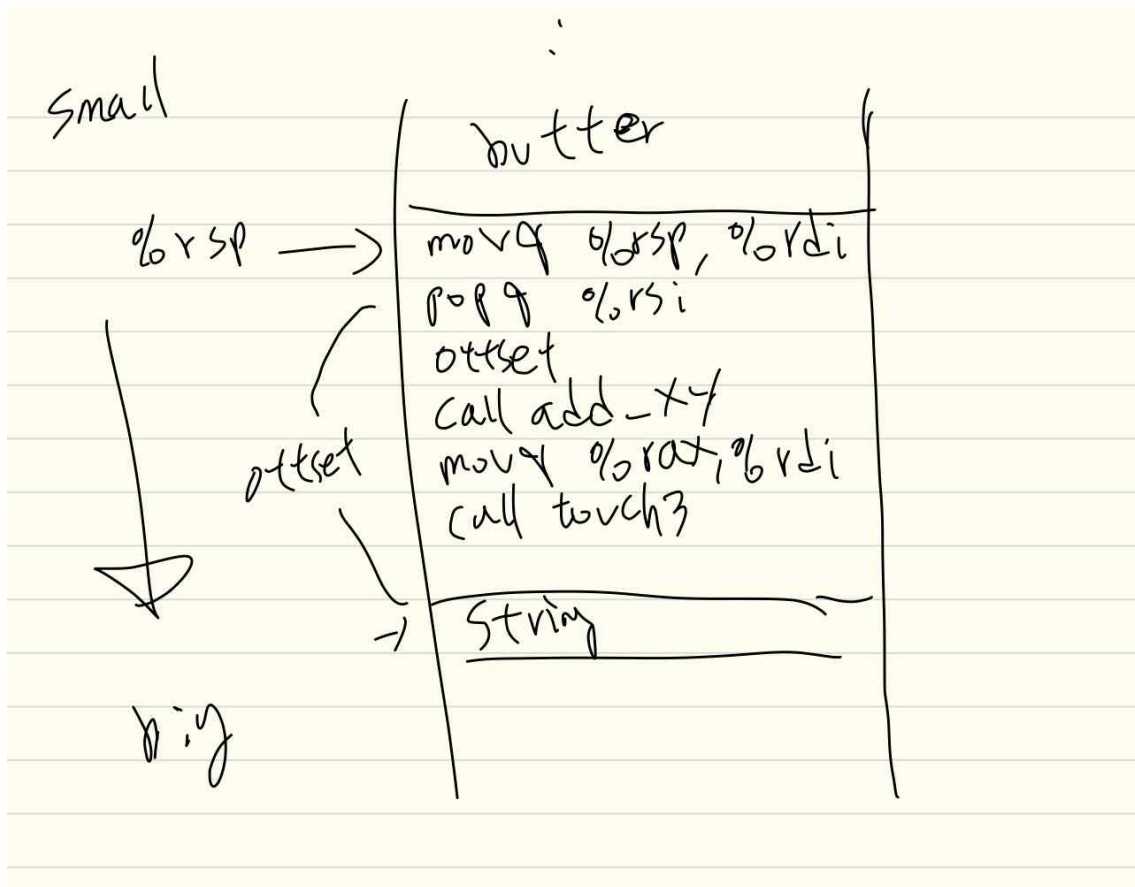 small
buffer
%rsp →
movq %rsp, %rdi
popq %rsi
offset
call add_xy
offset
movq %rax, %rdi
call touch3
string
big